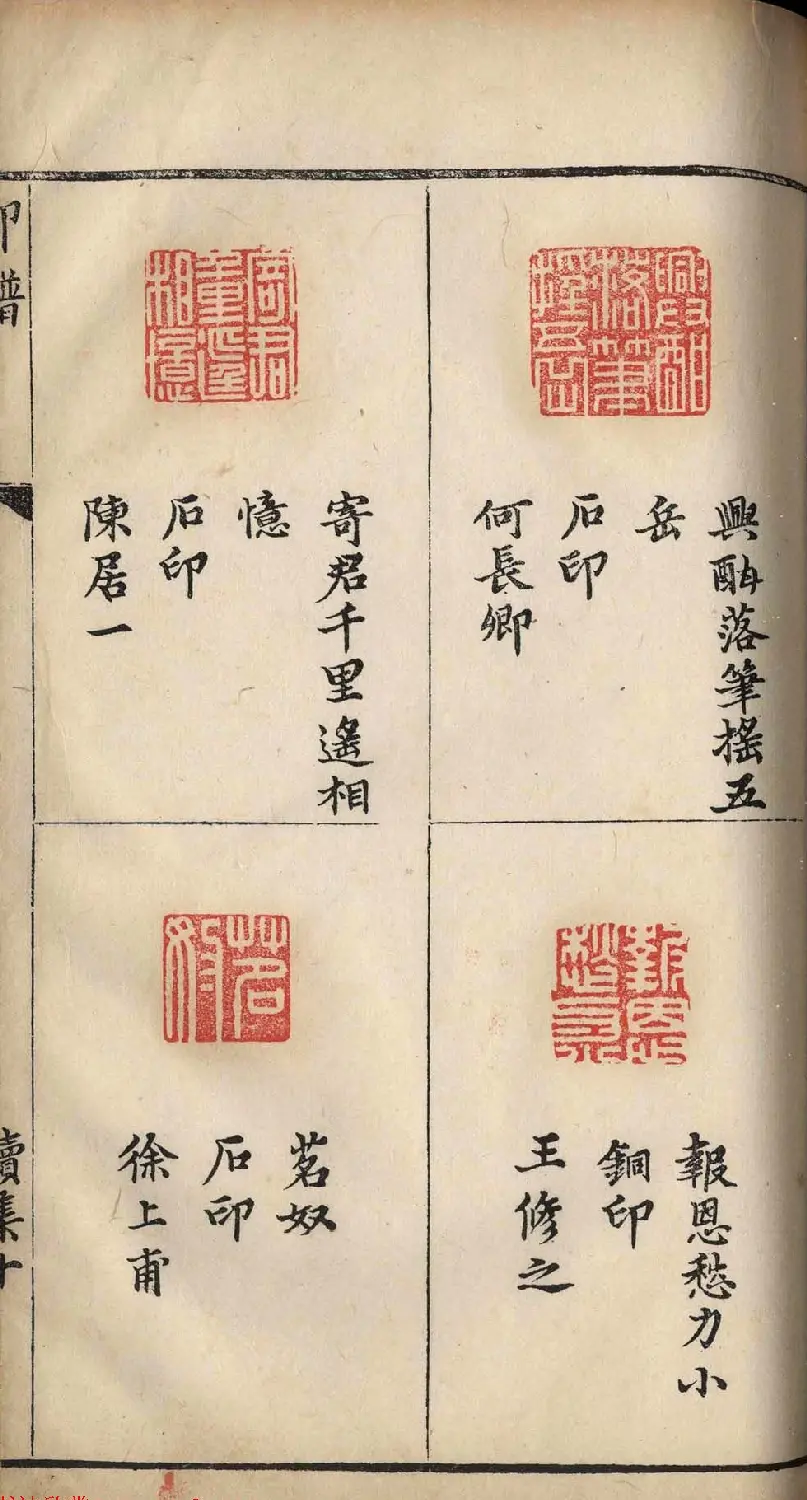 興酣落筆搖五
岳
石印
何長卿
報恩愁力小
銅印
王修之
寄君千里遙相
憶
石印
陳居一
茗奴
石印
徐上甫
印譜
續集十